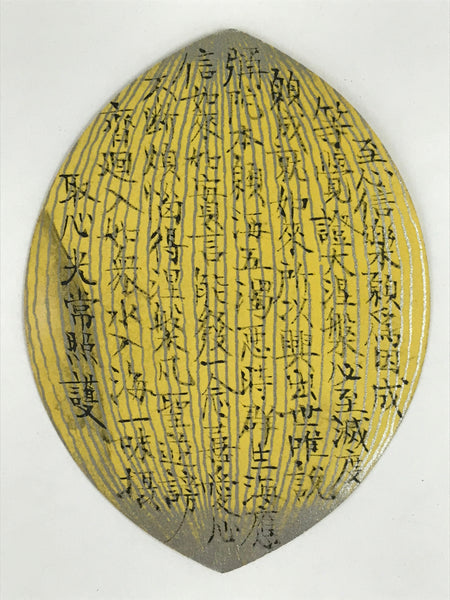 至心信樂願爲因成
等覺證大涅槃必至滅度
願成就如來所以興出世唯説
彌陀本願海五濁惡時群生海應
信如來如實言能發一念喜愛心
不断煩惱得涅槃凡聖逆謗
齊廻入如衆水入海一味攝
取心光常照護